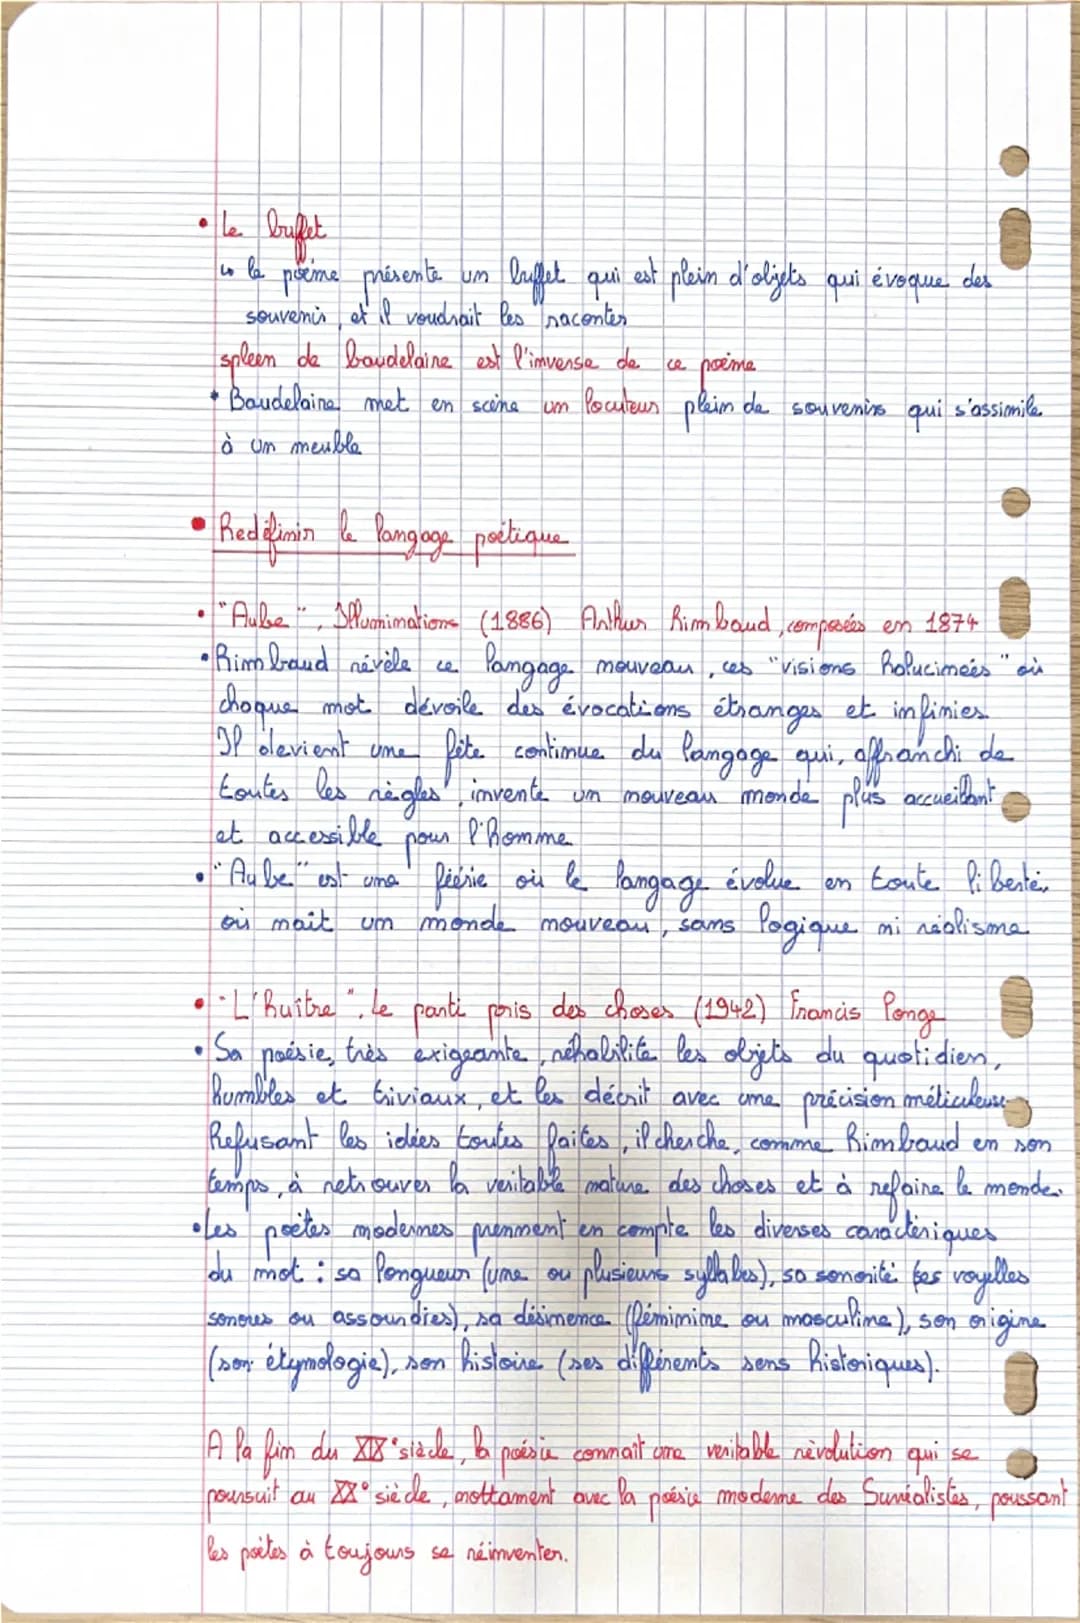 • Le buffet
↳ le poème présente un buffet qui est plein d'objets qui évoque des
souvenir, et il voudrait les raconter
spleen de baudelaire est l'inverse de ce poème
• Baudelaire met en scène un locuteur plein de souvenirs qui s'assimile
à un meuble
• Redéfinir le langage poétique
• "Aube", Illuminations (1886) Arthur Rimbaud, composées en 1874
• Rimbaud révèle ce langage nouveau, ces "visions halucinées" où
chaque mot dévoile des évocations étranges et infinies.
Il devient une fête continue du langage qui, affranchi de
toutes les règles, invente un nouveau monde plus accueillant
et accessible pour l'homme
• "Aube" est une féérie où le langage évolue en toute liberté,
où nait un monde nouveau, sans logique ni réalisme
• "L'huître", Le parti pris des choses (1942) Francis Ponge
• Sa poésie, très exigeante, réhabilite les objets du quotidien,
humbles et triviaux, et les décrit avec une précision méticuleuse
Refusant les idées toutes faites, il cherche, comme Rimbaud en son
temps, à retrouver la veritable nature des choses et à refaire le monde.
• Les poètes modernes prennent en compte les diverses caractériques
du mot : sa longueur (une ou plusieurs syllabes), sa sonorité (ses voyelles
sonores ou assourdies), sa désinence (féminime ou masculine), son origine
(son étymologie), son histoire (ses différents sens historiques).
A la fin du XIX° siècle, la poésie connait une veritable révolution qui se
poursuit au XX° siècle, nottament avec la poésie moderne des Surréalistes, poussant
les poètes à toujours se réinventer.